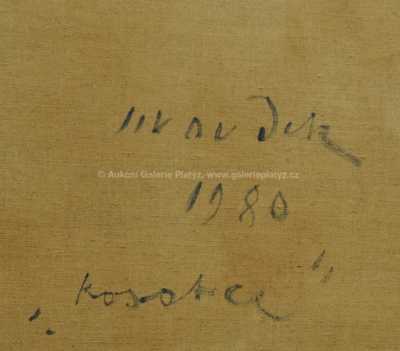 © Aukční Galerie Platýz, www.galerieplatyz.cz
1980
„kosatce"